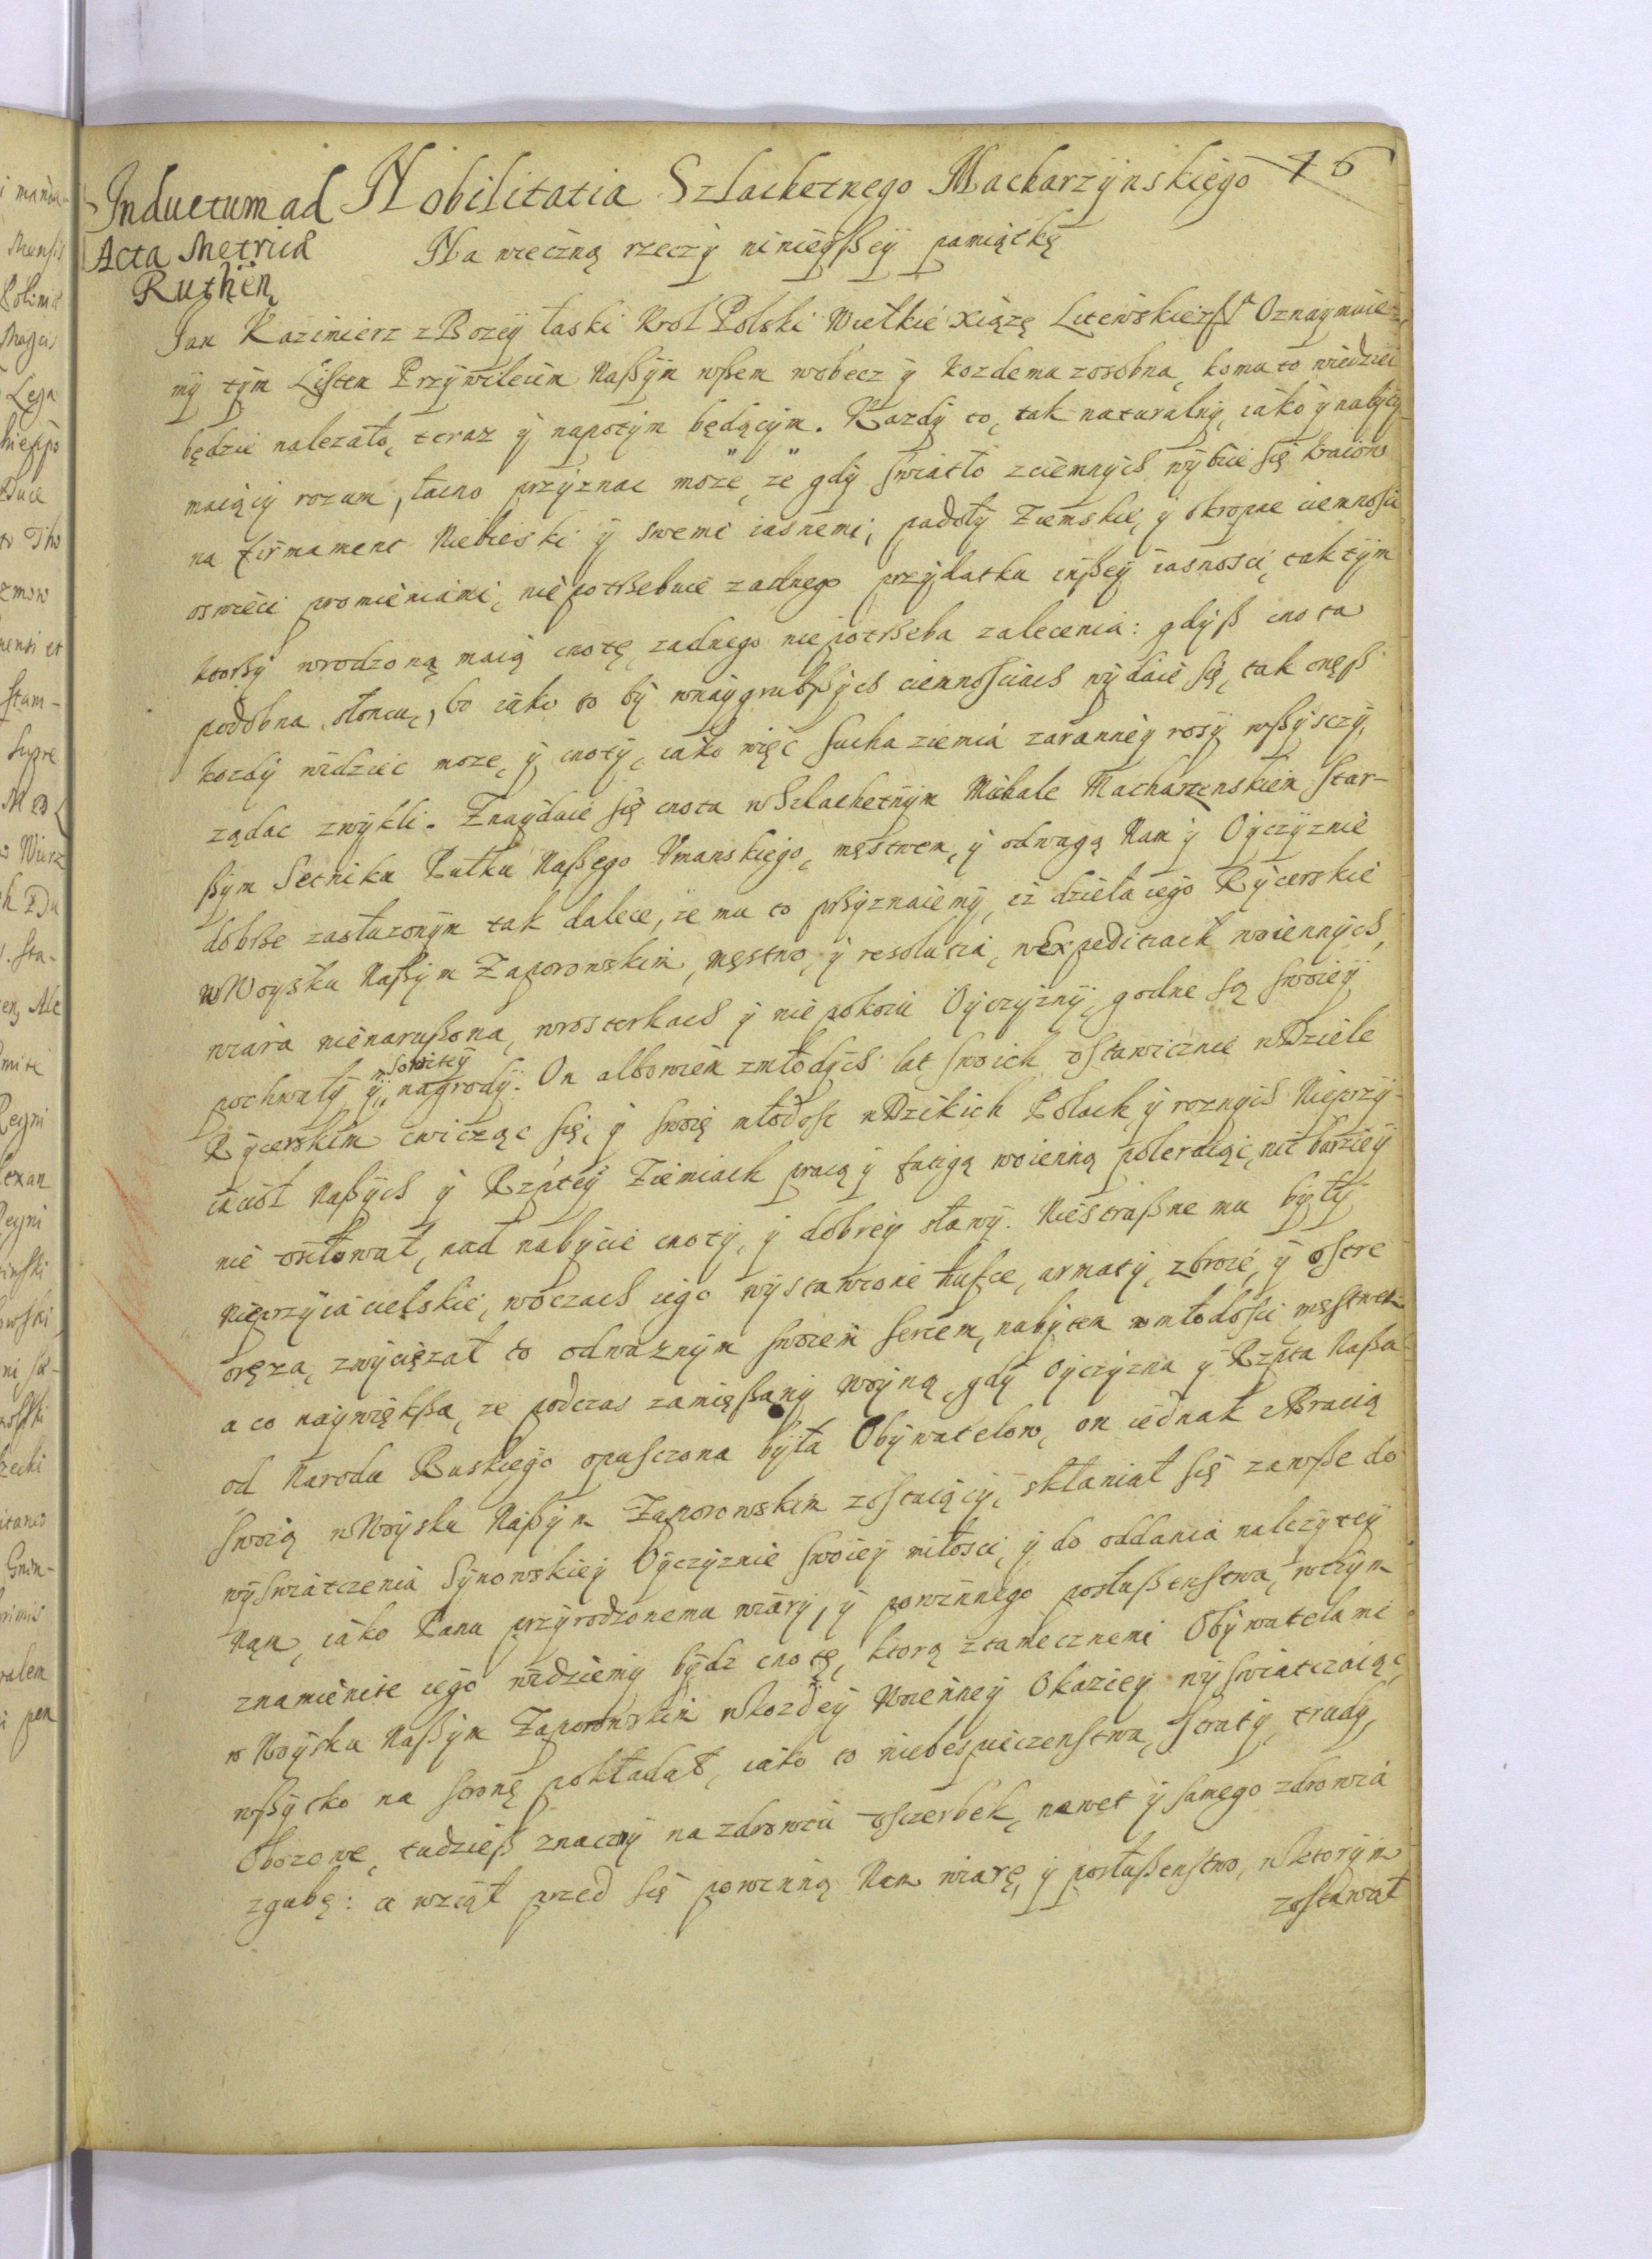 Inductum ad Nobilitatia Szlachetnego Macharzynskiego 76
Acta Metrica
Ruthen
Na wieczną rzeczy ninieyßey pamiątkę
Jan Kazimierz z Bozey łaski Krol Polski Wielkie xiążę Litewskie Oznaymuie-
my tym Listem Przywileiem Naßym wßem wobecz y kozdemu zosobna, komu to wiedziec
będzie nalezało, teraz y napotym będącym. Kazdy to, tak naturalny, iako y nabyty
maiący rozum, łacno przyznac może, że gdy swiatło zciemnych wybiie się kraiow
na firmament Niebieski y swemi iasnemi, padoły Ziemskie, y okropne ciemnosci
oswieci promieniami, nie potrßebuie zadnego przydatku inßey iasnosci, tak tym
ktorßy wrodzoną maią cnotę, zadnego nie potrßeba zalecenia: gdyß cnota
podobna słoncu, bo iako to by wnaygrubßych ciemnosciach wydaie się, tak onęß
kozdy widziec moze, y cnoty, iako więc sucha ziemia zaranney rosy wßysczy,
ządac zwykli. Znayduie się cnota w Szlachetnym Michale Macharzenskiem Star-
ßym Setniku Pułku Naßego Umanskiego, męstwem, y odwagą Nam y Oyczyznie
dobrße zasłuzonym tak dalece, że mu to prßyznaiemy, iz dzieła iego Rycerskie
w Woysku Naßym Zaporowskim, męstwo, y resolutia, w Expeditiach woiennych,
wiara nienarußona, wrosterkach y nie pokoiu Oyczyzny, godne są swoiey
pochwały y sowitey nagrody. On albowiem zmłodych lat swoich ustawicznie w Dziele
Rycerskim cwicząc się, y swoię młodosc w Dzikich Polach, y roznych Nieprzy-
iacioł Naßych y Rzptey Ziemiach pracą y fatigą woienną poleruiąc, nic barziey
nie usiłował, nad nabycie cnoty, y dobrey sławy. Niestraßne mu były
Nieprzyiacielskie, woczach iego wystawione hufce, armaty, zbroie, y ostre
oręza, zwyciężał to odwaznym swoiem sercem, nabytem w młodosci męstwem
a co naywiękßa, ze podczas zamießany woyną, gdy Oyczyzna y Rzpta Naßa
od Narodu Ruskiego opusczona była Obywatelow, on iednak z Bracią
swoią w Woysku Naßym Zaporowskim zostaiący, skłaniał się zawße do
wyswiatczenia Synowskiey Oyczyznie swoiey miłosci, y do oddania nalezytey
Nam, iako Panu przyrodzonemu wiary, y powinnego posłußenstwa, wczym
znamienite iego widziemy bydz cnotę, ktorą ztamecznemi Obywatelami
w Woysku Naßym Zaporowskim w kozdey Woienney Okaziey wyswiatczaiąc,
wßytko na stronę pokładał, iako to niebespieczenstwa, straty, trudy,
Obozowe, tudzieß znaczny na zdrowiu usczerbek, nawet y samego zdrowia
zgubę: a wziął przed się powinną Nam wiarę, y posłußenstwo, w ktorym
zostawał